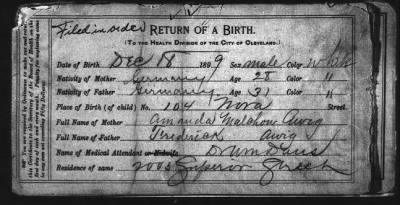 Filed in order
RETURN OF A BIRTH.
(TO THE HEALTH DIVISION OF THE CITY OF CLEVELAND.)
Date of Birth Dec 18 1899 Sex male Color white
Nativity of Mother Germany Age 28 Color "
Nativity of Father Germany Age 31 Color "
Place of Birth (of child) No. 104 Nora Street
Full Name of Mother Amanda Malchow Awig
Full Name of Father Frederick Awig
Name of Medical Attendant or Midwife Drum Davis
Residence of same 2005 Superior Street